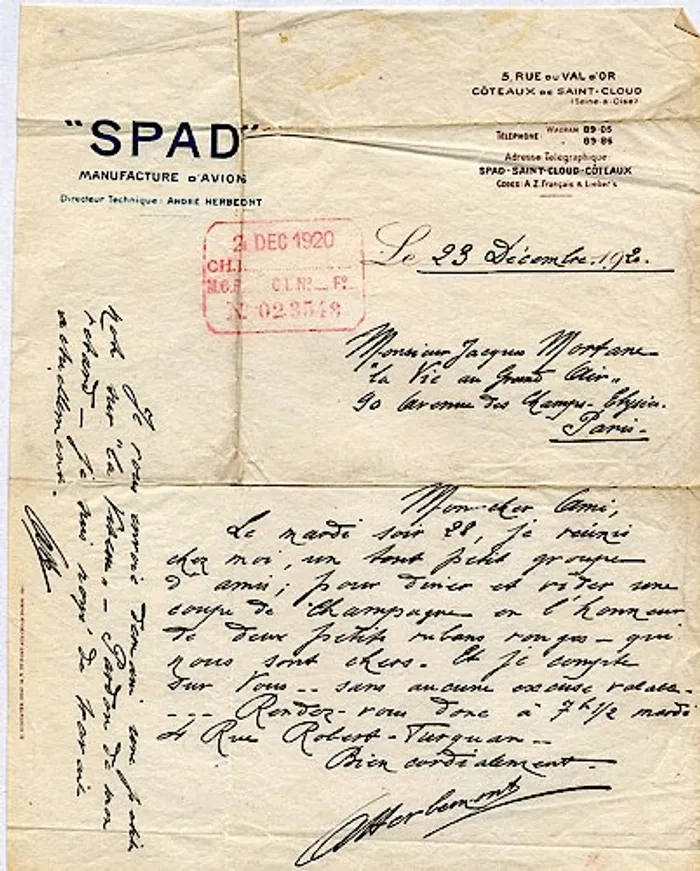 "SPAD"
MANUFACTURE D'AVION
Directeur Technique: ANDRÉ HERBEONT
5, RUE DU VAL D'OR
CÔTEAUX DE SAINT-CLOUD
(Seine-&-Oise)
TÉLÉPHONE: WAGRAM 89-05
" 89-86
Adresse Télégraphique:
SPAD-SAINT-CLOUD-CÔTEAUX
CODES: A.Z. Français & Lieber's
2 DEC 1920
CH.I.
C.I. Nº Fº
Nº 023548
Le 23 Décembre 192.
Monsieur Jacques Mortane
"La Vie au Grand Air"
90 Avenue des Champs-Elysées.
Paris-
Mon cher Ami,
Le mardi soir 28, je réunis
chez moi, un tout petit groupe
d'amis; pour diner et vider une
coupe de Champagne en l'honneur
de deux petits rubans rouges - qui
nous sont chers. Et je compte
sur Vous -- sans aucune excuse
--- Rendez-vous donc à 7h 1/2 mardi
4 Rue Robert-Turquan--
Bien cordialement-
AHerbemont
Je vous envoie demain une petite
note sur "la - Pardon de mon
retard - je suis noyé de travail
actuellement.